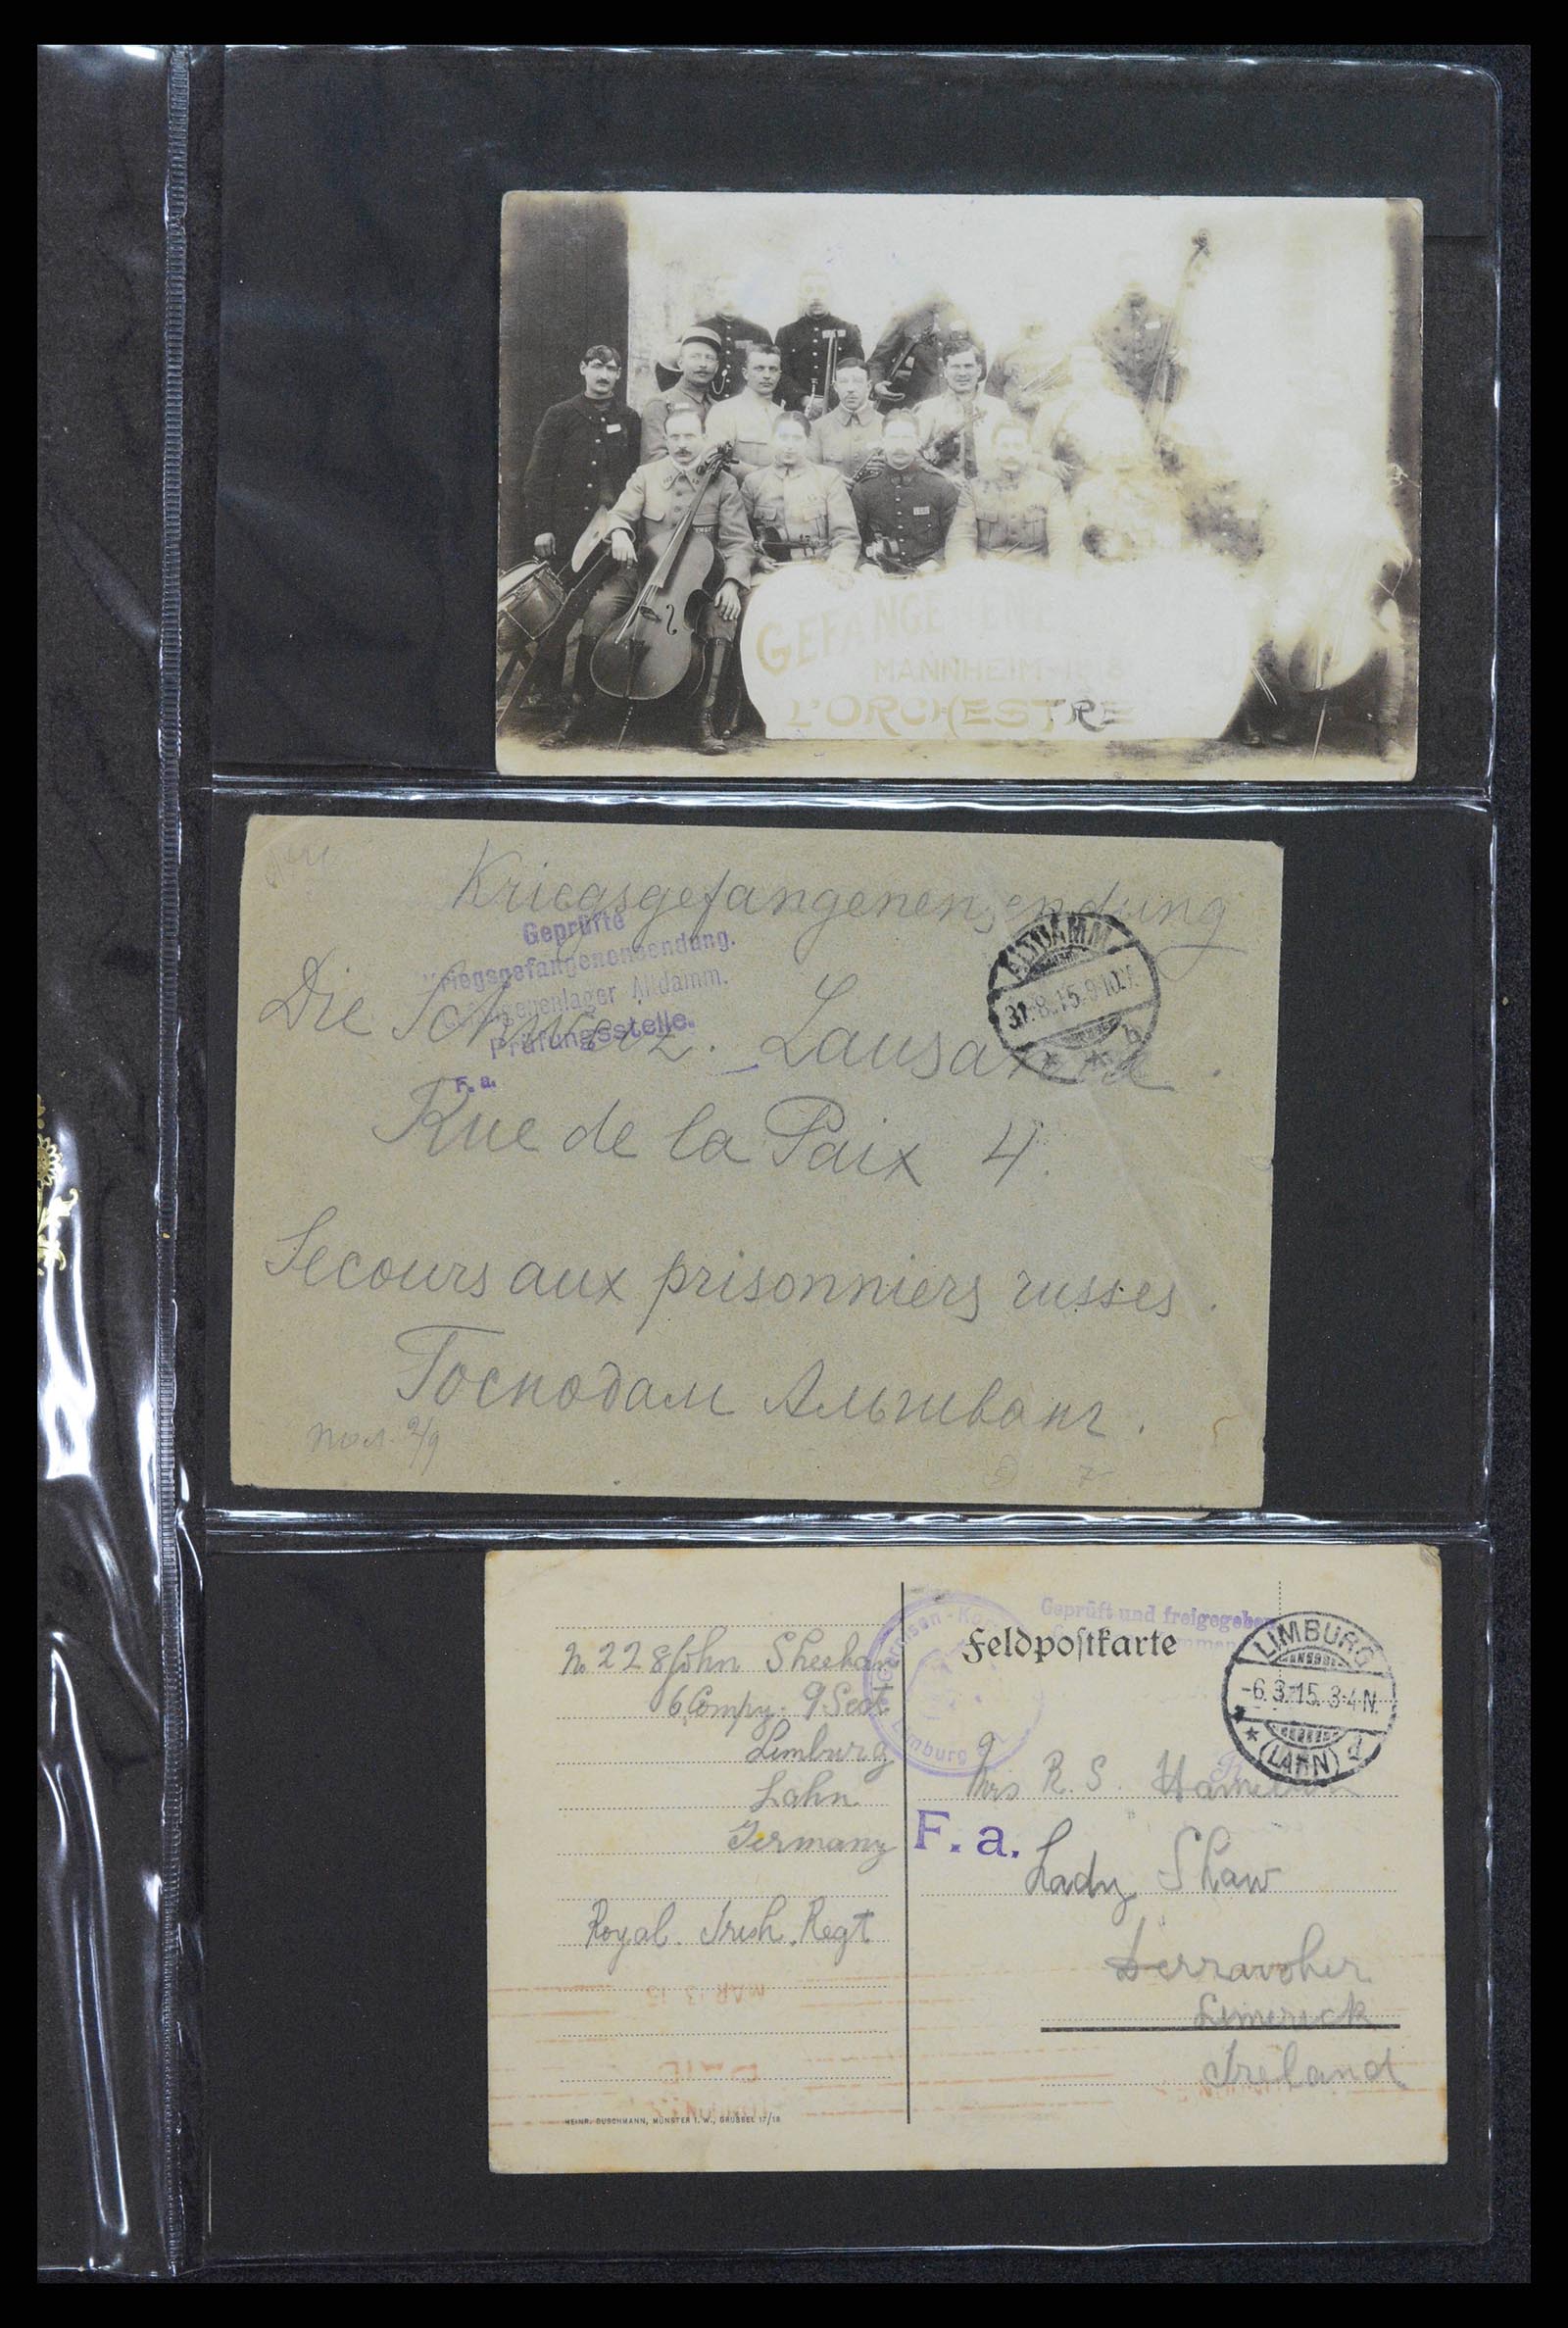 GEFANGENEN
MANNHEIM
L'ORCHESTRE
Kriegsgefangenensendung
Geprüfte
Kriegsgefangenensendung.
Gefangenenlager Altdamm.
Prüfungsstelle.
F. a.
ALTDAMM
31.8.15. 9-10V.
b
Die Schweiz. Lausanne.
Rue de la Paix 4.
Secours aux prisonniers russes.
Господам
Geprüft und freigegeben
Feldpostkarte
LIMBURG
-6.3.15. 3-4N.
(LAHN) d
No 228 John Sheehan
6 Compy. 9 Sect
Limburg
Lahn
Germany
Royal. Irish. Regt
Mrs R. S.
F. a.
Lady Shaw
Limerick
Ireland
MAR 13 15
HEINR. BUSCHMANN, MÜNSTER I. W., BRÜSSEL 17/18